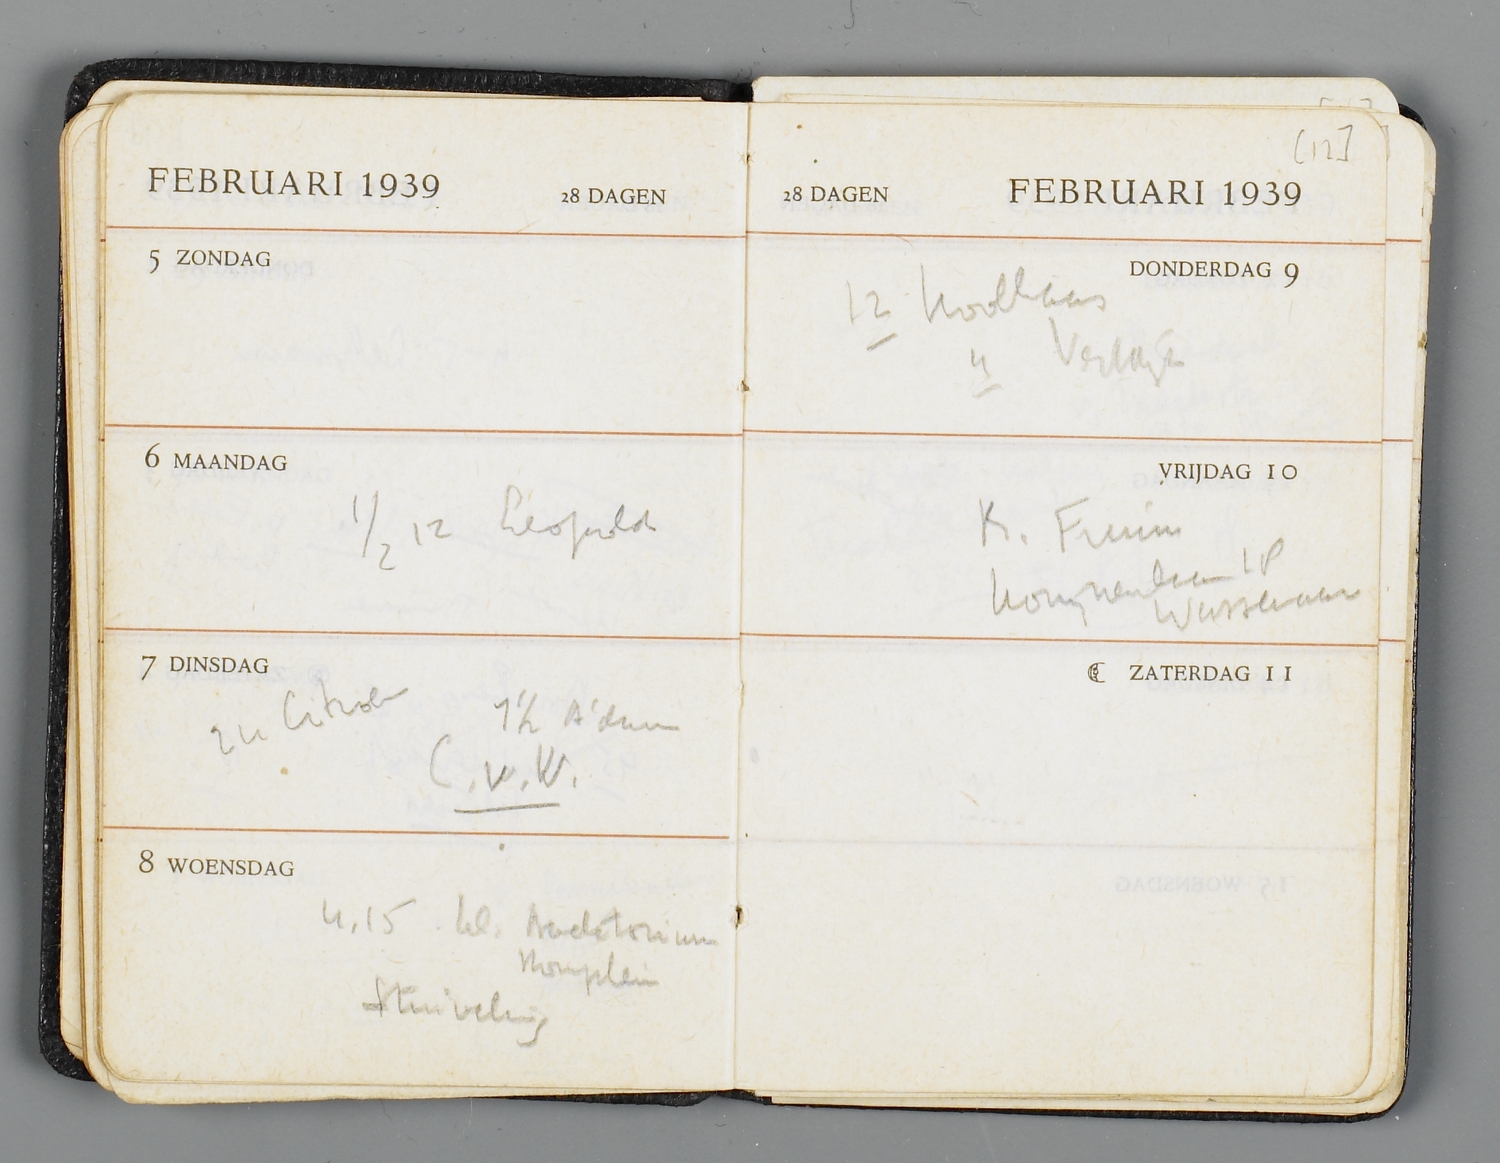 FEBRUARI 1939 28 DAGEN
5 ZONDAG
6 MAANDAG
1/2 12 Leopold
7 DINSDAG
2 u Citroen
7 1/2 A'dam
C.v.W.
8 WOENSDAG
4.15 kl. Auditorium
Domplein
Stuiveling
[12]
28 DAGEN FEBRUARI 1939
DONDERDAG 9
12 Koolhaas
4
VRIJDAG 10
K.
18
Wassenaar
ZATERDAG 11